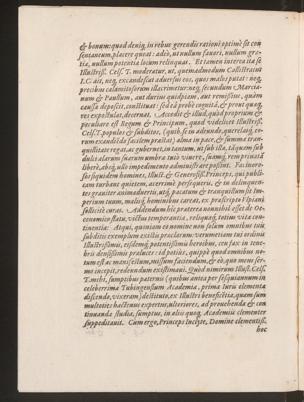 & bonum: quod deniq; in rebus gerendis rationi optimè sit con
sentaneum, placere queat: adeò, ut nullum fauori, nullum gra-
tiæ, nullum potentia locum relinquat. Et tamen interea ita se
Illustriss. Cels. T. moderatur, ut, quemadmodum Callistratus
I.C. ait, neq; excandescat aduersus eos, quos malos putat: neq;
precibus calamitosorum illacrimetur: neq; secundum Marcia-
num & Paullum, aut durius quidpiam, aut remissius, quàm
causa deposcit, constituat: sed ea probè cognita, & prout quæq;
res expostulat, decernat. Accedit & illud, quod propriùm &
peculiare est Regum & Principum, quod videlicet Illustriss.
Cels. T. populos & subditos, (quib. se in adeundo, querelasq; eo-
rum exaudiendo facilem præstat) alma in pace, & summa tran-
quillitate regat, ac gubernet, in tantum, ut sub ista, tāquam sub
dulci alarum suarum umbra tutò viuere, suamq; rem priuatā
liberè, absq; ullo impedimento administrare possint. Facinoro-
sos siquidem homines, Illust. & Generosiss. Princeps, qui publi-
cam turbant quietem, acerrimè persequeris, & in delinquen-
tes grauiter animaduertis: atq; pacatum & tranquillum sit Im-
perium tuum, malisq; hominibus careat, ex præscripto Vlpiani,
sollicitè curas. Addendum hîc præterea nonnihil esset de Oe-
conomico statu, victus temperantia, reliquaq; totius vitæ con-
tinentia: Atqui, quoniam eo nomine non solum omnibus tuis
subditis exemplum exstas præclarum: verumetiam toti ordini
Illustrissimis, eisdemq; potentissimis heroibus, ceu fax in tene-
bris densissimis præluces: id potius, quippe quod omnibus no-
tum est ac manifestum, missum faciendum, & eò, quo meus ser-
mo incepit, redeundum existimaui. Quòd nimirum Illust. Cels.
T. mihi, sumptibus paternis (quibus antea per sesquiannum in
celeberrima Tubingensium Academia, prima Iuris elementa
discendo, vixeram) destituto, ex Illustri beneficētia, quam sum
multoties hactenus expertus, ulteriores, ad prouehenda & con
tinuanda studia, sumptus, in aliis quoq; Academiis clementer
suppeditauit. Cum ergo, Princeps Inclyte, Domine clementiss.
hoc